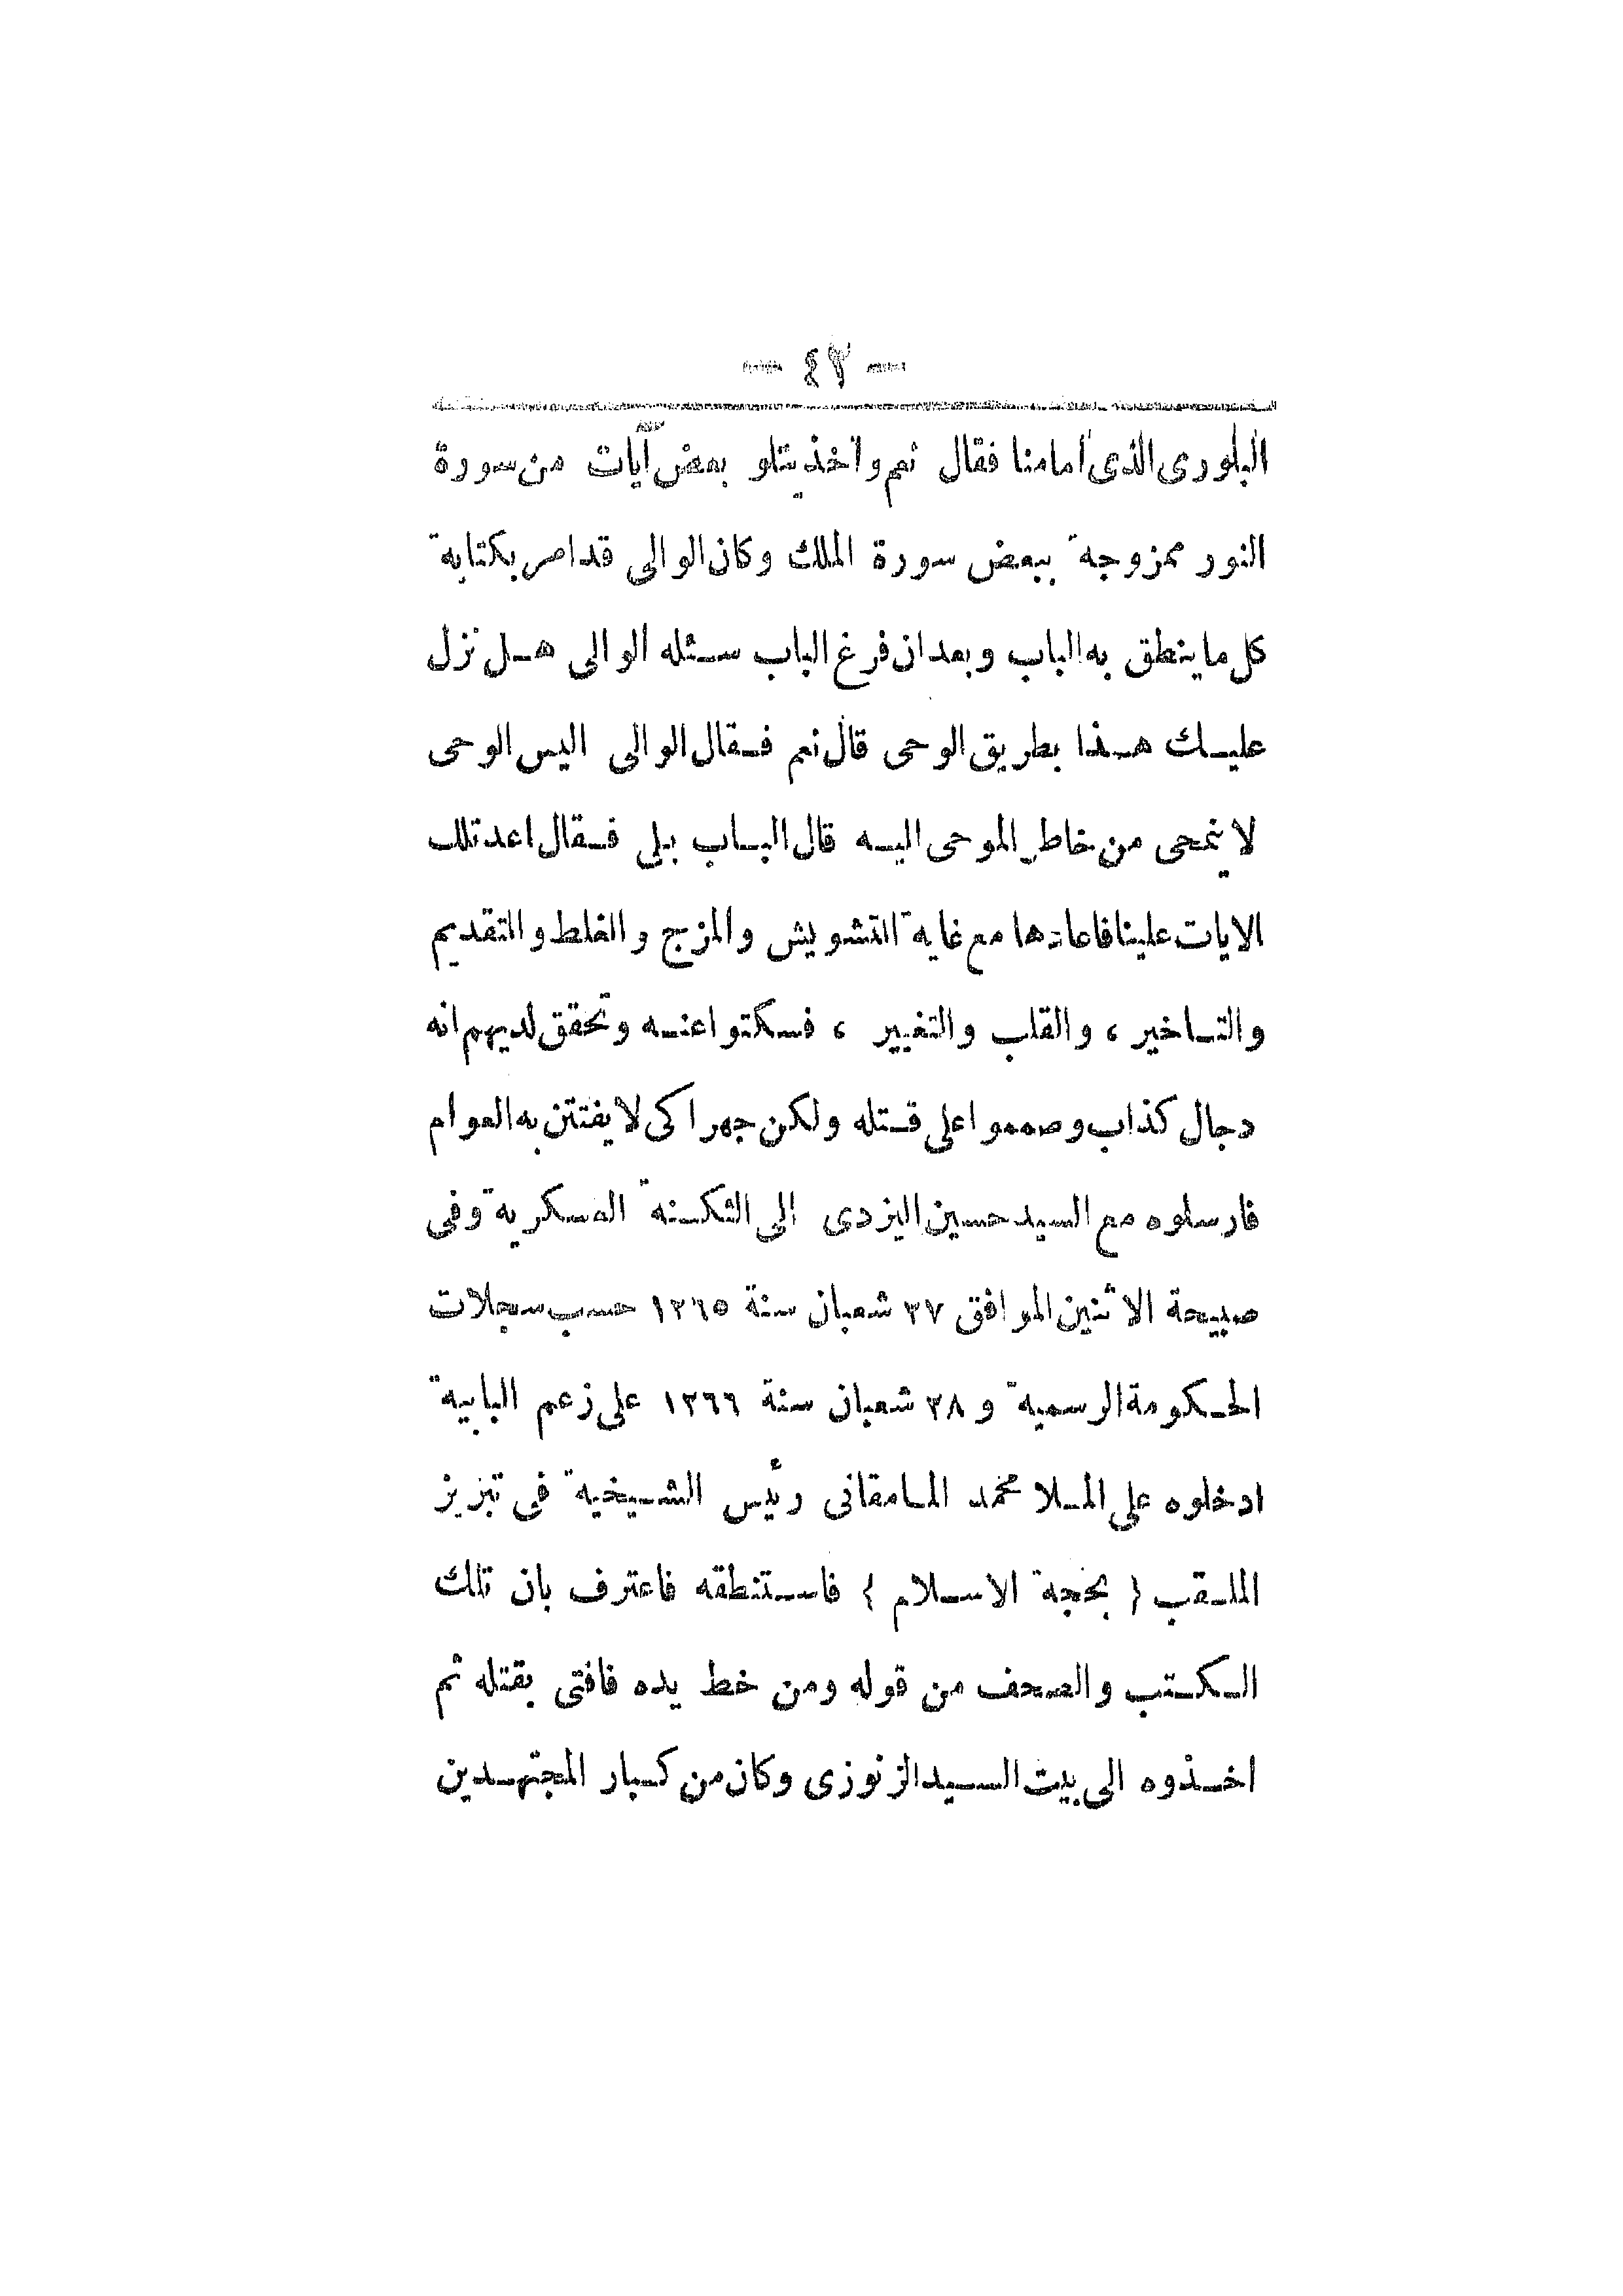 — ٤٣ —
البلورى الذى أمامنا فقال نعم وأخذ يتلو بعض آيات من سورة
النور ممزوجة ببعض سورة الملك وكان الوالى قد امر بكتابة
كل ما ينطق به الباب وبعد ان فرغ الباب سـئله الوالى هـل نزل
عليـك هـذا بطريق الوحى قال نعم فـقال الوالى اليس الوحى
لا ينمحى من خاطر الموحى اليـه قال البـاب بلى فـقال اعد تلك
الايات علينا فاعادها مع غاية التشويش والمزج والغلط والتقديم
والتـاخير ، والقلب والتغيير ، فسكتوا عنـه وتحقق لديهم انه
دجال كذاب وصمموا على قـتله ولكن جهرا كى لا يفتتن به العوام
فارسلوه مع السيد حسين اليزدى الى الثكـنة العسكرية وفى
صبيحة الاثنين الموافق ٢٧ شعبان سنة ١٢٦٥ حسب سجلات
الحـكومة الرسمية و ٢٨ شعبان سنة ١٢٦٦ على زعم البابية
ادخلوه على المـلا محمد المـامقانى رئيس الشـيخية فى تبريز
الملـقب { بحجة الاسـلام } فاسـتنطقه فاعترف بان تلك
الـكـتب والصحف من قوله ومن خط يده فافتى بقتله ثم
اخـذوه الى بيت السـيد الزنوزى وكان من كـبار المجتهـدين